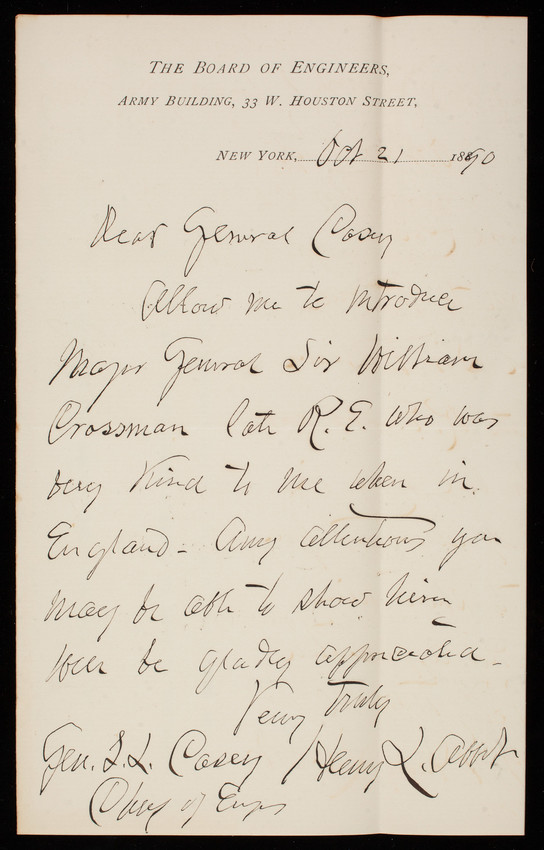 THE BOARD OF ENGINEERS,
ARMY BUILDING, 33 W. HOUSTON STREET,
NEW YORK, Oct 21 1890
Dear General Casey
Allow me to introduce
Major General Sir William
Crossman late R.E. who was
very kind to me when in
England - Any attentions you
may be able to show him
will be gladly appreciated -
Very truly
Gen. T. L. Casey Henry L. Abbot
Chief of Engrs